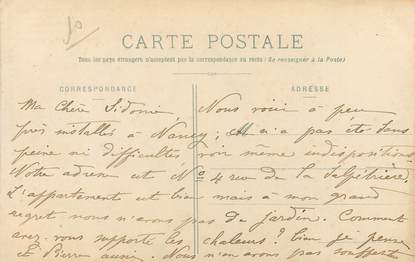 CARTE POSTALE
Tous les pays étrangers n'acceptent pas la correspondance au recto (Se renseigner à la Poste)
CORRESPONDANCE
ADRESSE
Ma Chère Sidonie Nous voici à peu
près installés à Nancy, ce n'a pas été sans
peine ni difficultés voir même indispositions
Notre adresse est N° 4 rue de la Salpêtrière.
L'appartement est bien mais à mon grand
regret nous n'avons pas de jardin. Comment
avez vous supporté les chaleurs? bien je pense
et Pierre aussi. Nous n'en avons pas souffert